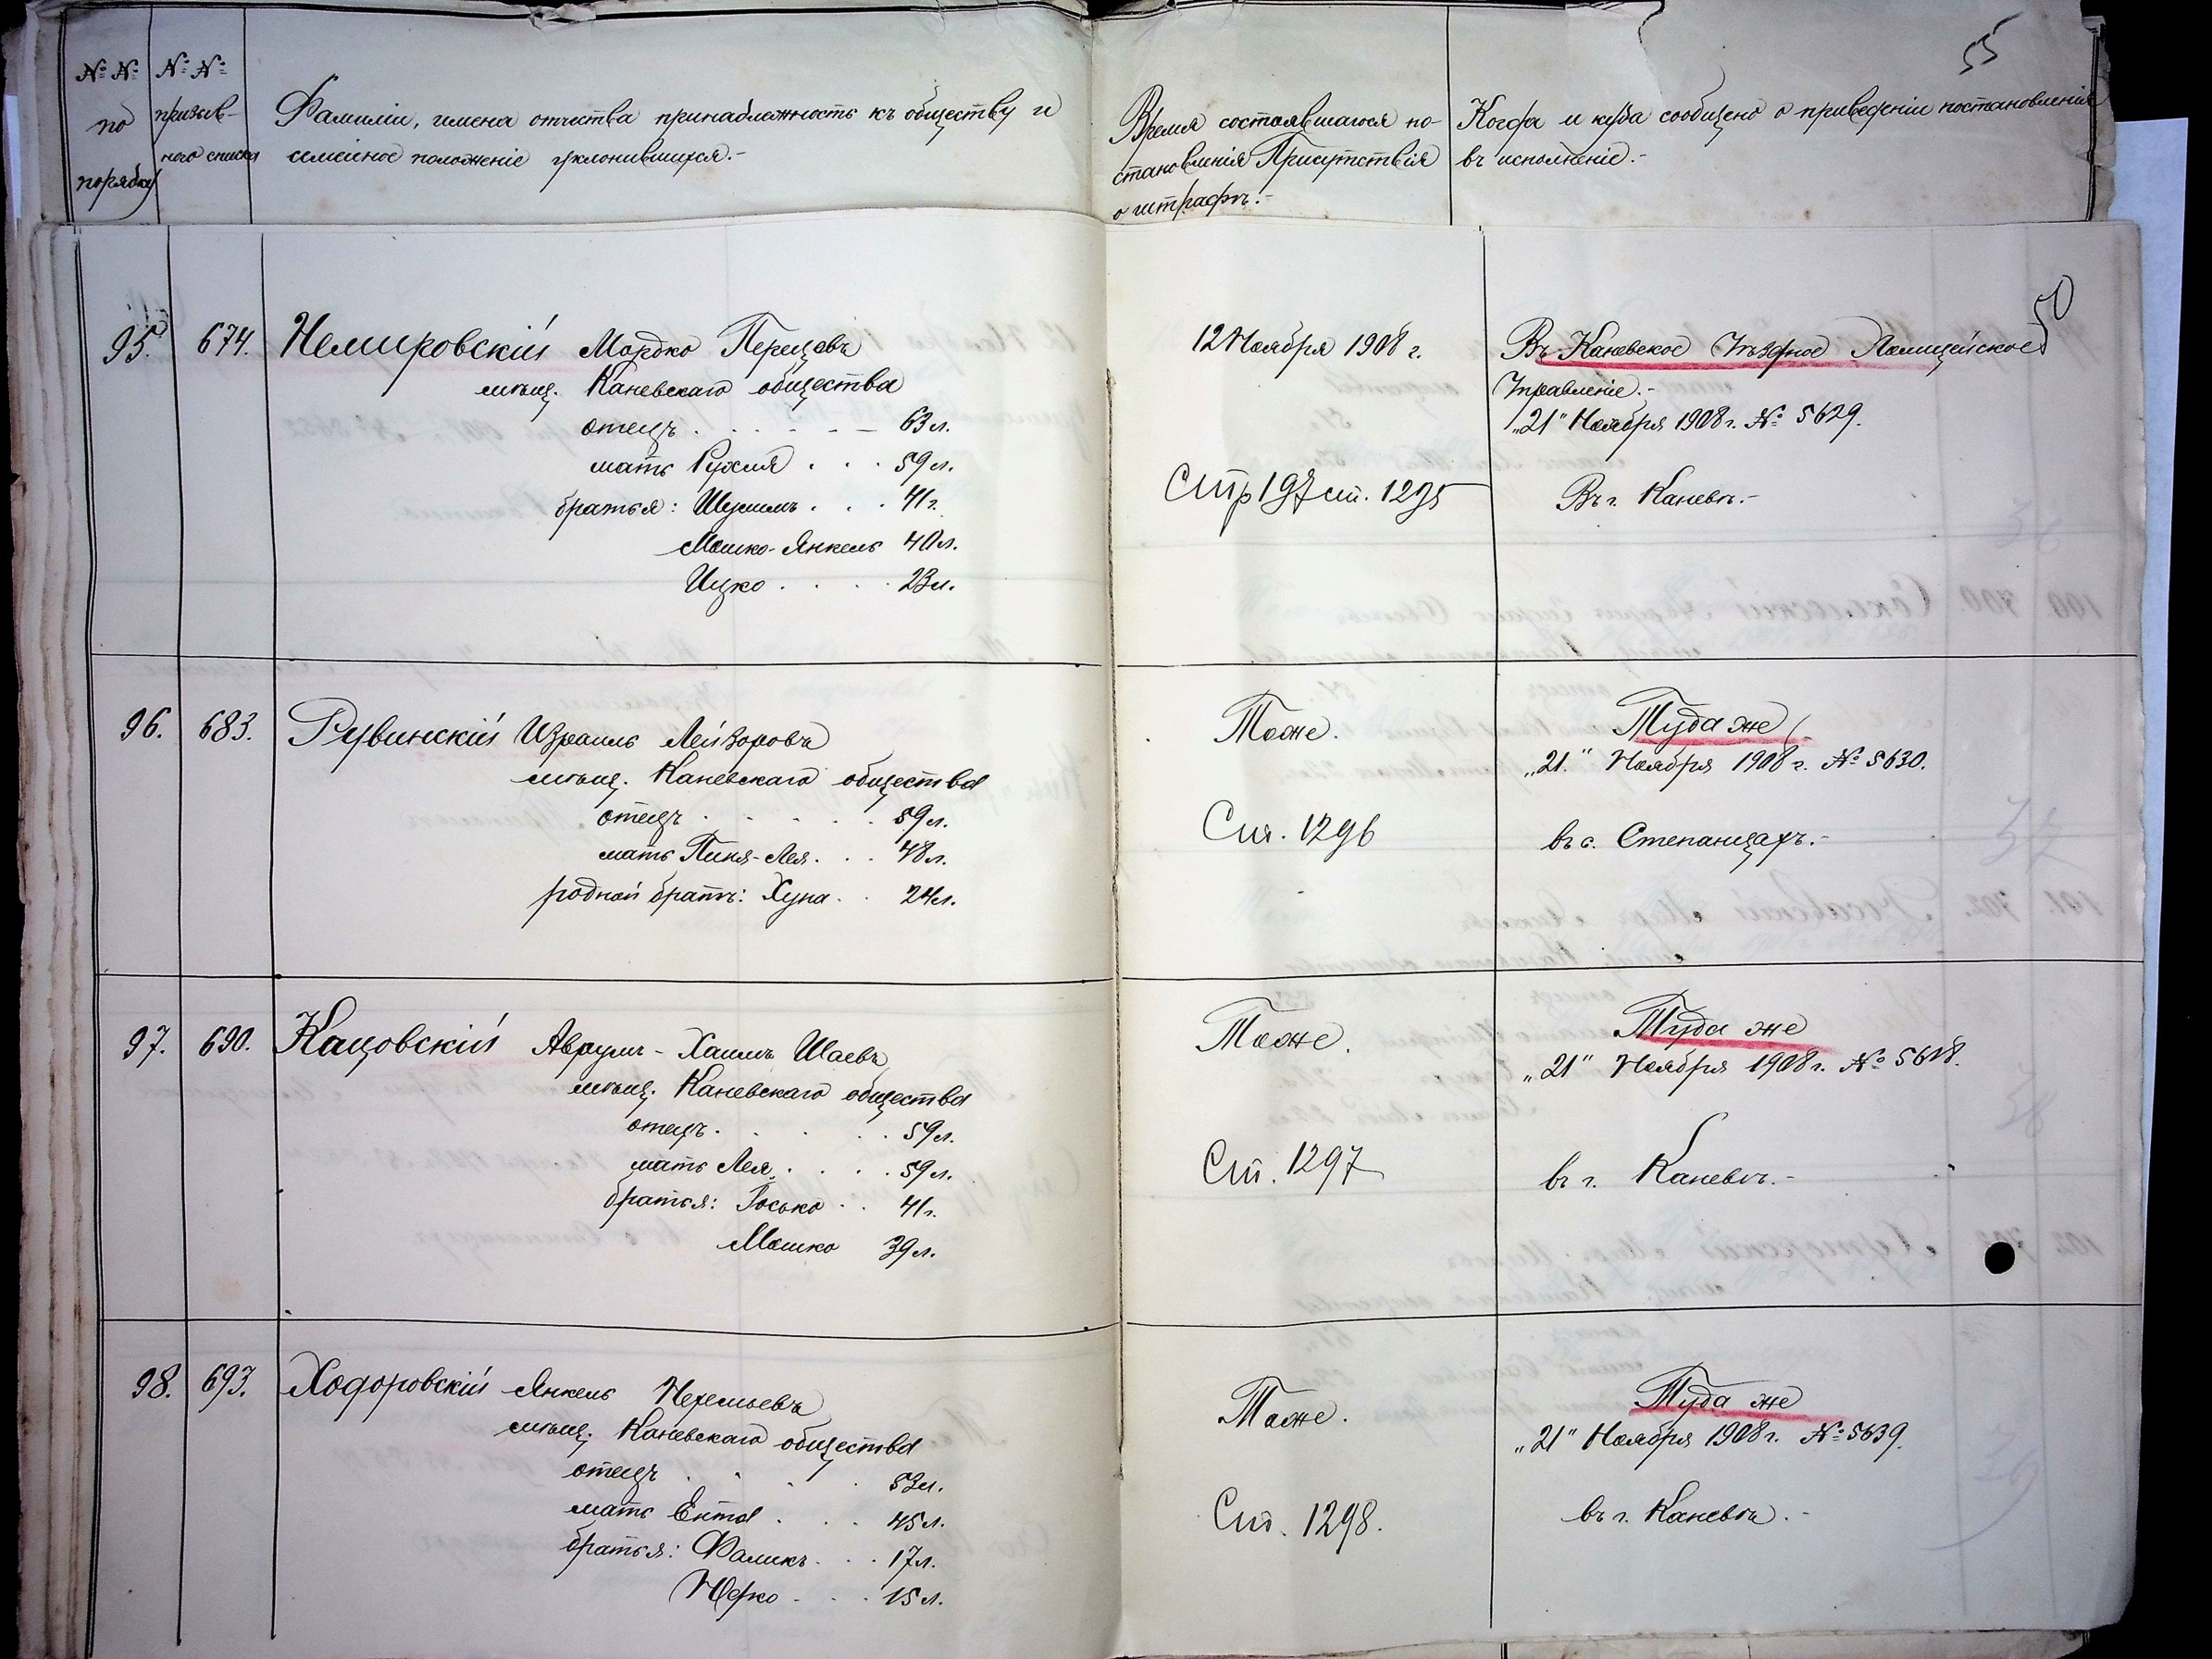 №№ по порядку
№№ призыв-
наго списка
Фамиліи, имена отчества принадлежность къ обществу и
семейное положеніе уклонившихся.-
Время состоявшагося по-
становленія Присутствія
о штрафѣ.-
Когда и куда сообщено о приведеніи постановленія
въ исполненіе.-
55
50
95. 674. Немировскій Мордко Перецовъ
мѣщ. Каневскаго общества
отецъ . . . . . 63 л.
мать Рухля . . . 59 л.
братья: Шулимъ . . . 41 г.
Мошко-Янкель 40 л.
Ицко . . . . 23 л.
12 Ноября 1908 г.
Стр 197 ст. 1295
Въ Каневское Уѣздное Полицейское
Управленіе.-
„21" Ноября 1908 г. № 5629.
Въ г. Каневѣ.-
96. 683. Рувинскій Израиль Лейзоровъ
мѣщ. Каневскаго общества
отецъ . . . . . 59 л.
мать Пиня-Лея . . . 48 л.
родной братъ: Хуна . . 24 л.
Тоже.
Ст. 1296
Туда же
„21." Ноября 1908 г. № 5630.
въ с. Степанцахъ.-
97. 690. Кацовскій Аврумъ-Хаимъ Шаевъ
мѣщ. Каневскаго общества
отецъ . . . . . 59 л.
мать Лея . . . . 59 л.
братья: Іосько . . 41 г.
Мошко 39 л.
Тоже.
Ст. 1297
Туда же
„21" Ноября 1908 г. №
въ г. Каневѣ.-
98. 693. Ходоровскій Янкель
мѣщ. Каневскаго общества
отецъ . . . . 53 л.
мать Ента . . . 45 л.
братья: Фаликъ . . . 17 л.
. . . 15 л.
Тоже.
Ст. 1298.
Туда же
„21" Ноября 1908 г. № 5639.
въ г. Каневѣ.-